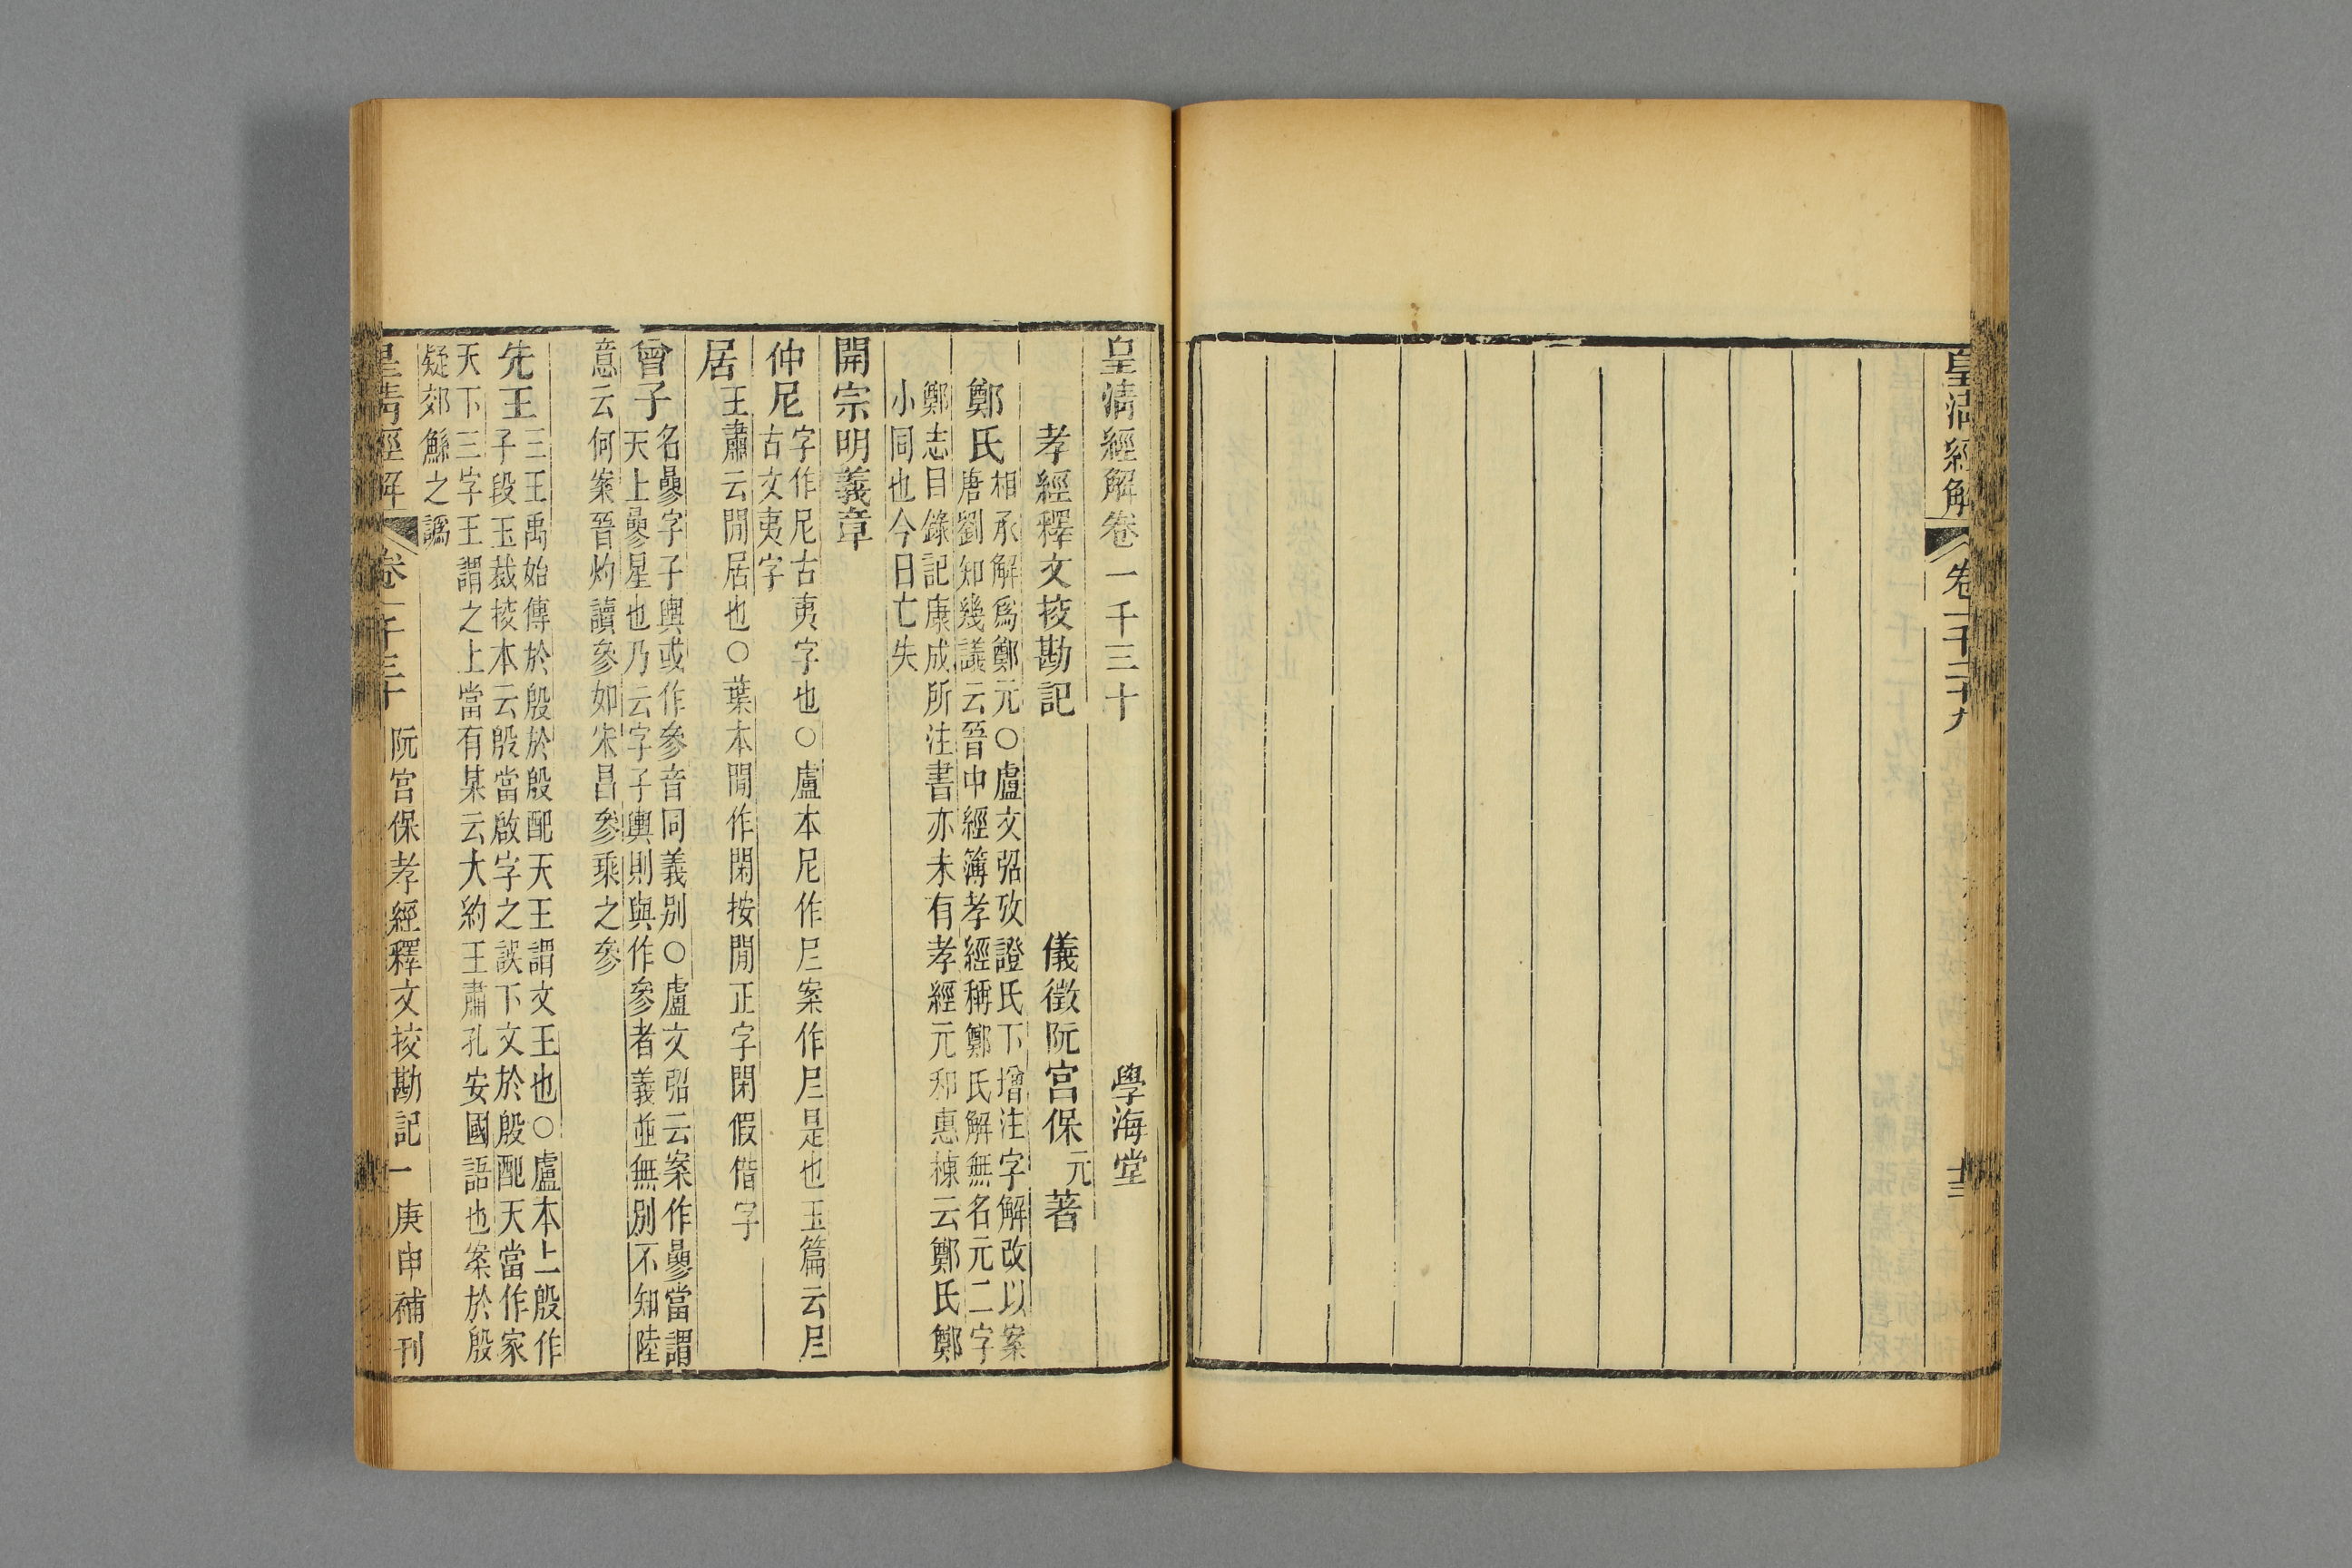 皇清經解
卷一千二十九
皇清經解卷一千三十
學海堂
孝經釋文挍勘記
儀徵阮宮保元著
鄭氏
相承解爲鄭元○盧文弨攷證氏下增注字解改以案
唐劉知幾議云晉中經簿孝經稱鄭氏解無名元二字
鄭志目錄記康成所注書亦未有孝經元和惠棟云鄭氏鄭
小同也今日亡失
開宗明義章
仲尼
字作尼古夷字也○盧本尼作𡰥案作𡰥是也玉篇云𡰥
古文夷字
居
王肅云閒居也○葉本閒作閑按閒正字閑假借字
曾子
名曑字子輿或作參音同義別○盧文弨云案作曑當謂
天上曑星也乃云字子輿則與作參者義並無別不知陸
意云何案晉灼讀參如宋昌參乘之參
先王
三王禹始傳於殷於殷配天王謂文王也○盧本上殷作
子段玉裁挍本云殷當啟字之誤下文於殷配天當作家
天下三字王謂之上當有某云大約王肅孔安國語也案於殷
疑郊鯀之譌
皇清經解
卷一千三十
阮宮保孝經釋文挍勘記
一
庚申補刊